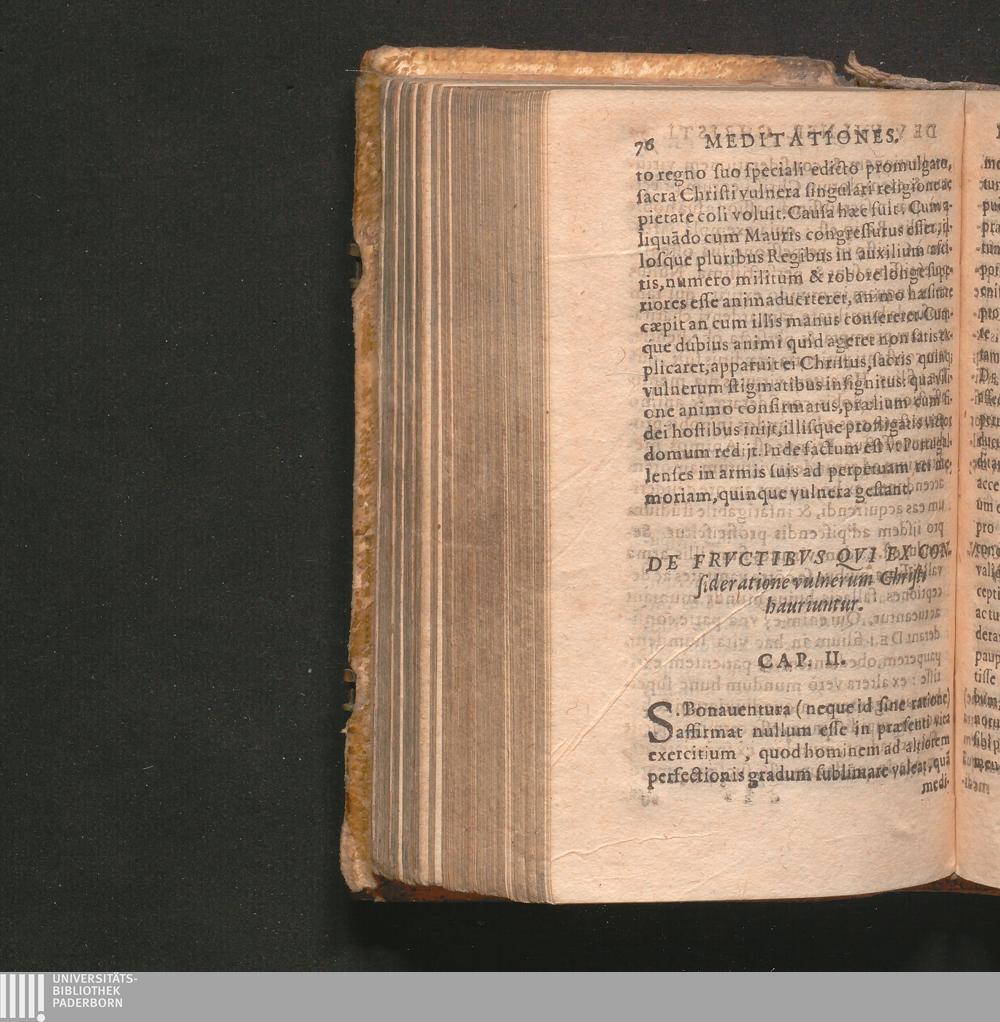 76 MEDITATIONES.
to regno suo speciali edicto promulgato,
sacra Christi vulnera singulari religione ac
pietate coli voluit. Causa hæc fuit. Cum a-
liquãdo cum Mauris congressurus esset, il-
losque pluribus Regibus in auxilium asci-
tis, numero militum & robore longe supe-
riores esse animaduerteret, animo hæsitare
cæpit an cum illis manus consereret. Cum-
que dubius animi quid ageret non satis ex-
plicaret, apparuit ei Christus, sacris quinq;
vulnerum stigmatibus insignitus: qua visi-
one animo confirmatus, prælium cum fi-
dei hostibus inijt, illisque profligatis victor
domum redijt. Inde factum est vt Portugal-
lenses in armis suis ad perpetuam rei me-
moriam, quinque vulnera gestant.
DE FRVCTIBVS QVI EX CON-
sideratione vulnerum Christi
hauriuntur.
CAP. II.
S. Bonauentura (neque id sine ratione)
affirmat nullum esse in præsenti vita
exercitium, quod hominem ad altiorem
perfectionis gradum sublimare valeat, quã
medi-
UNIVERSITÄTS-
BIBLIOTHEK
PADERBORN